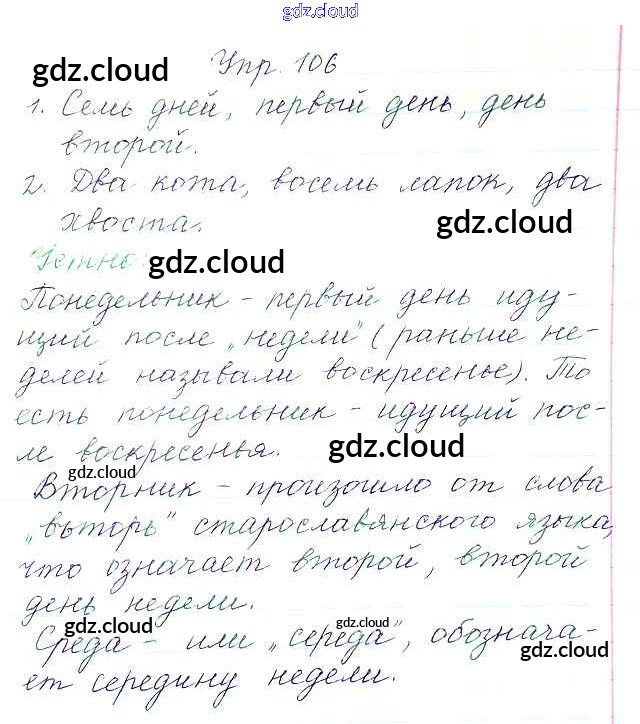 gdz.cloud
gdz.cloud Упр. 106
1. Семь дней, первый день, день
второй.
2. Два кота, восемь лапок, два
хвоста. gdz.cloud
Устно: gdz.cloud
Понедельник – первый день иду-
щий после „недели" (раньше не-
делей называли воскресенье). То
есть понедельник – идущий пос-
ле воскресенья. gdz.cloud
gdz.cloud
Вторник – произошло от слова
„въторъ" старославянского языка,
что означает второй, второй
день недели.
gdz.cloud gdz.cloud
Среда – или „середа", обознача-
gdz.cloud
ет середину недели.